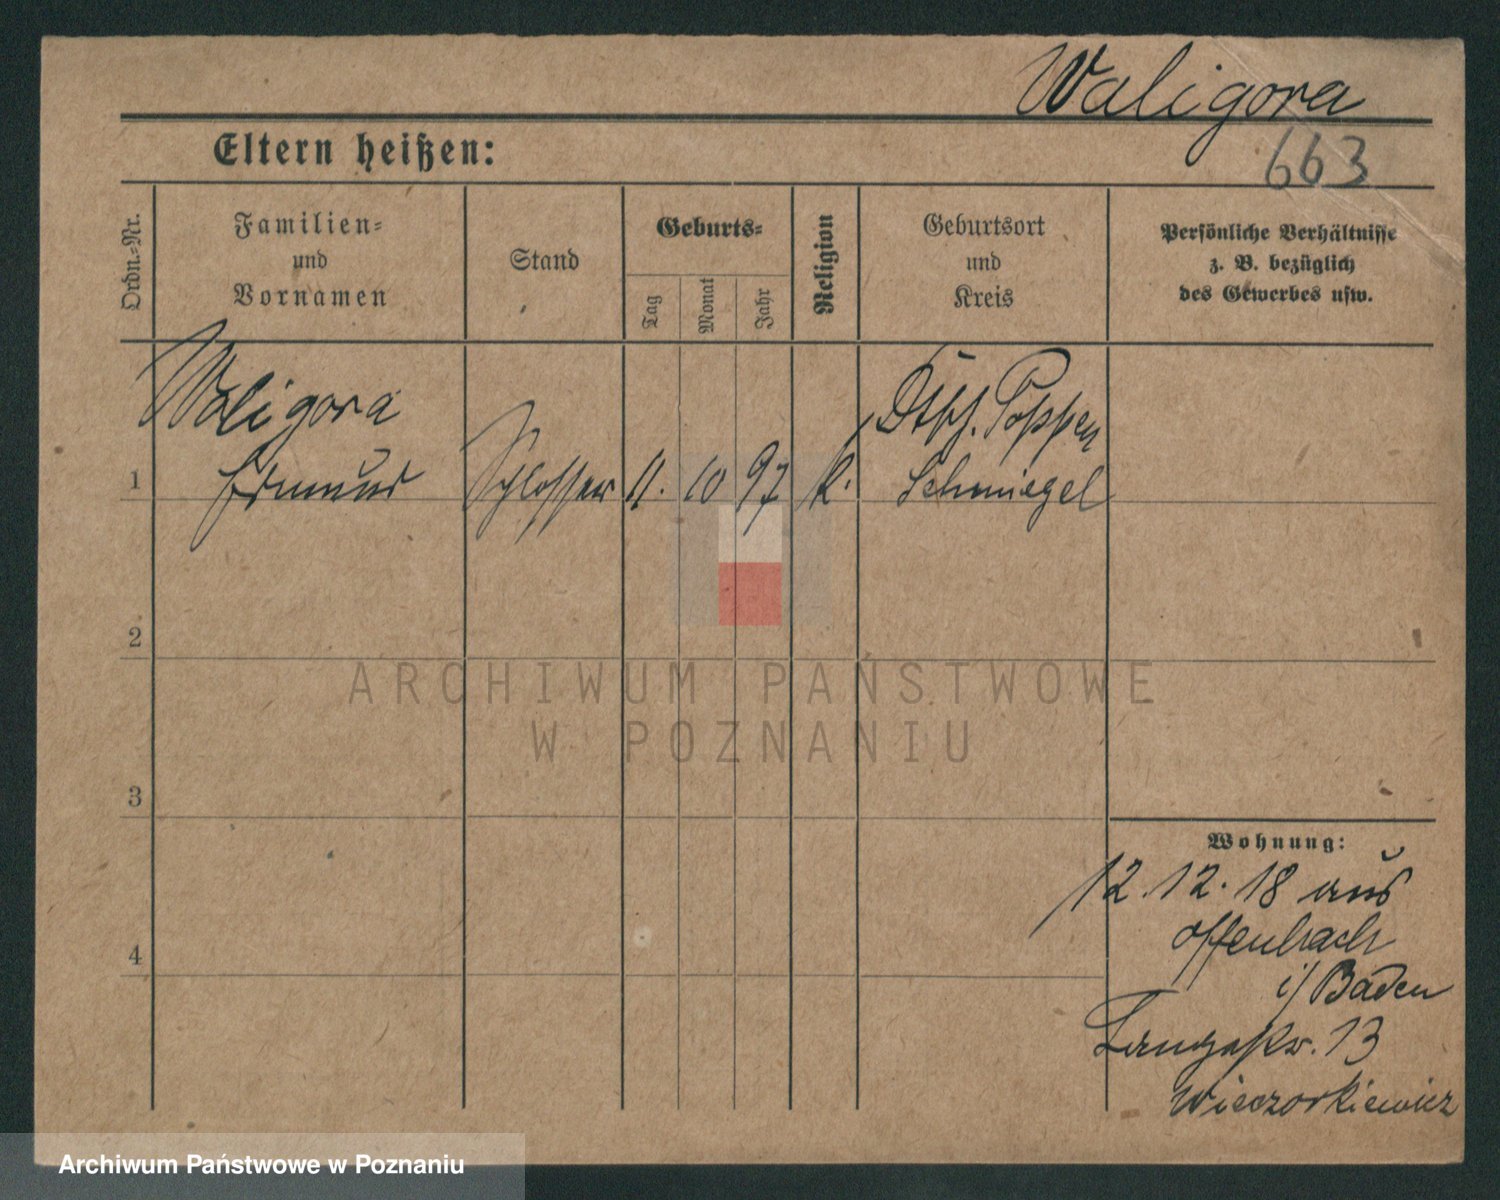 Waligora
663
Eltern heißen:
Ordn.-Nr.
Familien-
und
Vornamen
Stand
Geburts-
Tag
Monat
Jahr
Religion
Geburtsort
und
Kreis
Persönliche Verhältnisse
z. B. bezüglich
des Gewerbes usw.
1
Waligora
Edmund
Schlosser
11.
10
97
k.
Dtsch. Poppen
Schmiegel
2
3
4
Wohnung:
12.12.18 aus
Offenbach
i/Baden
13
Wieczorkiewicz
ARCHIWUM PAŃSTWOWE
W POZNANIU
Archiwum Państwowe w Poznaniu